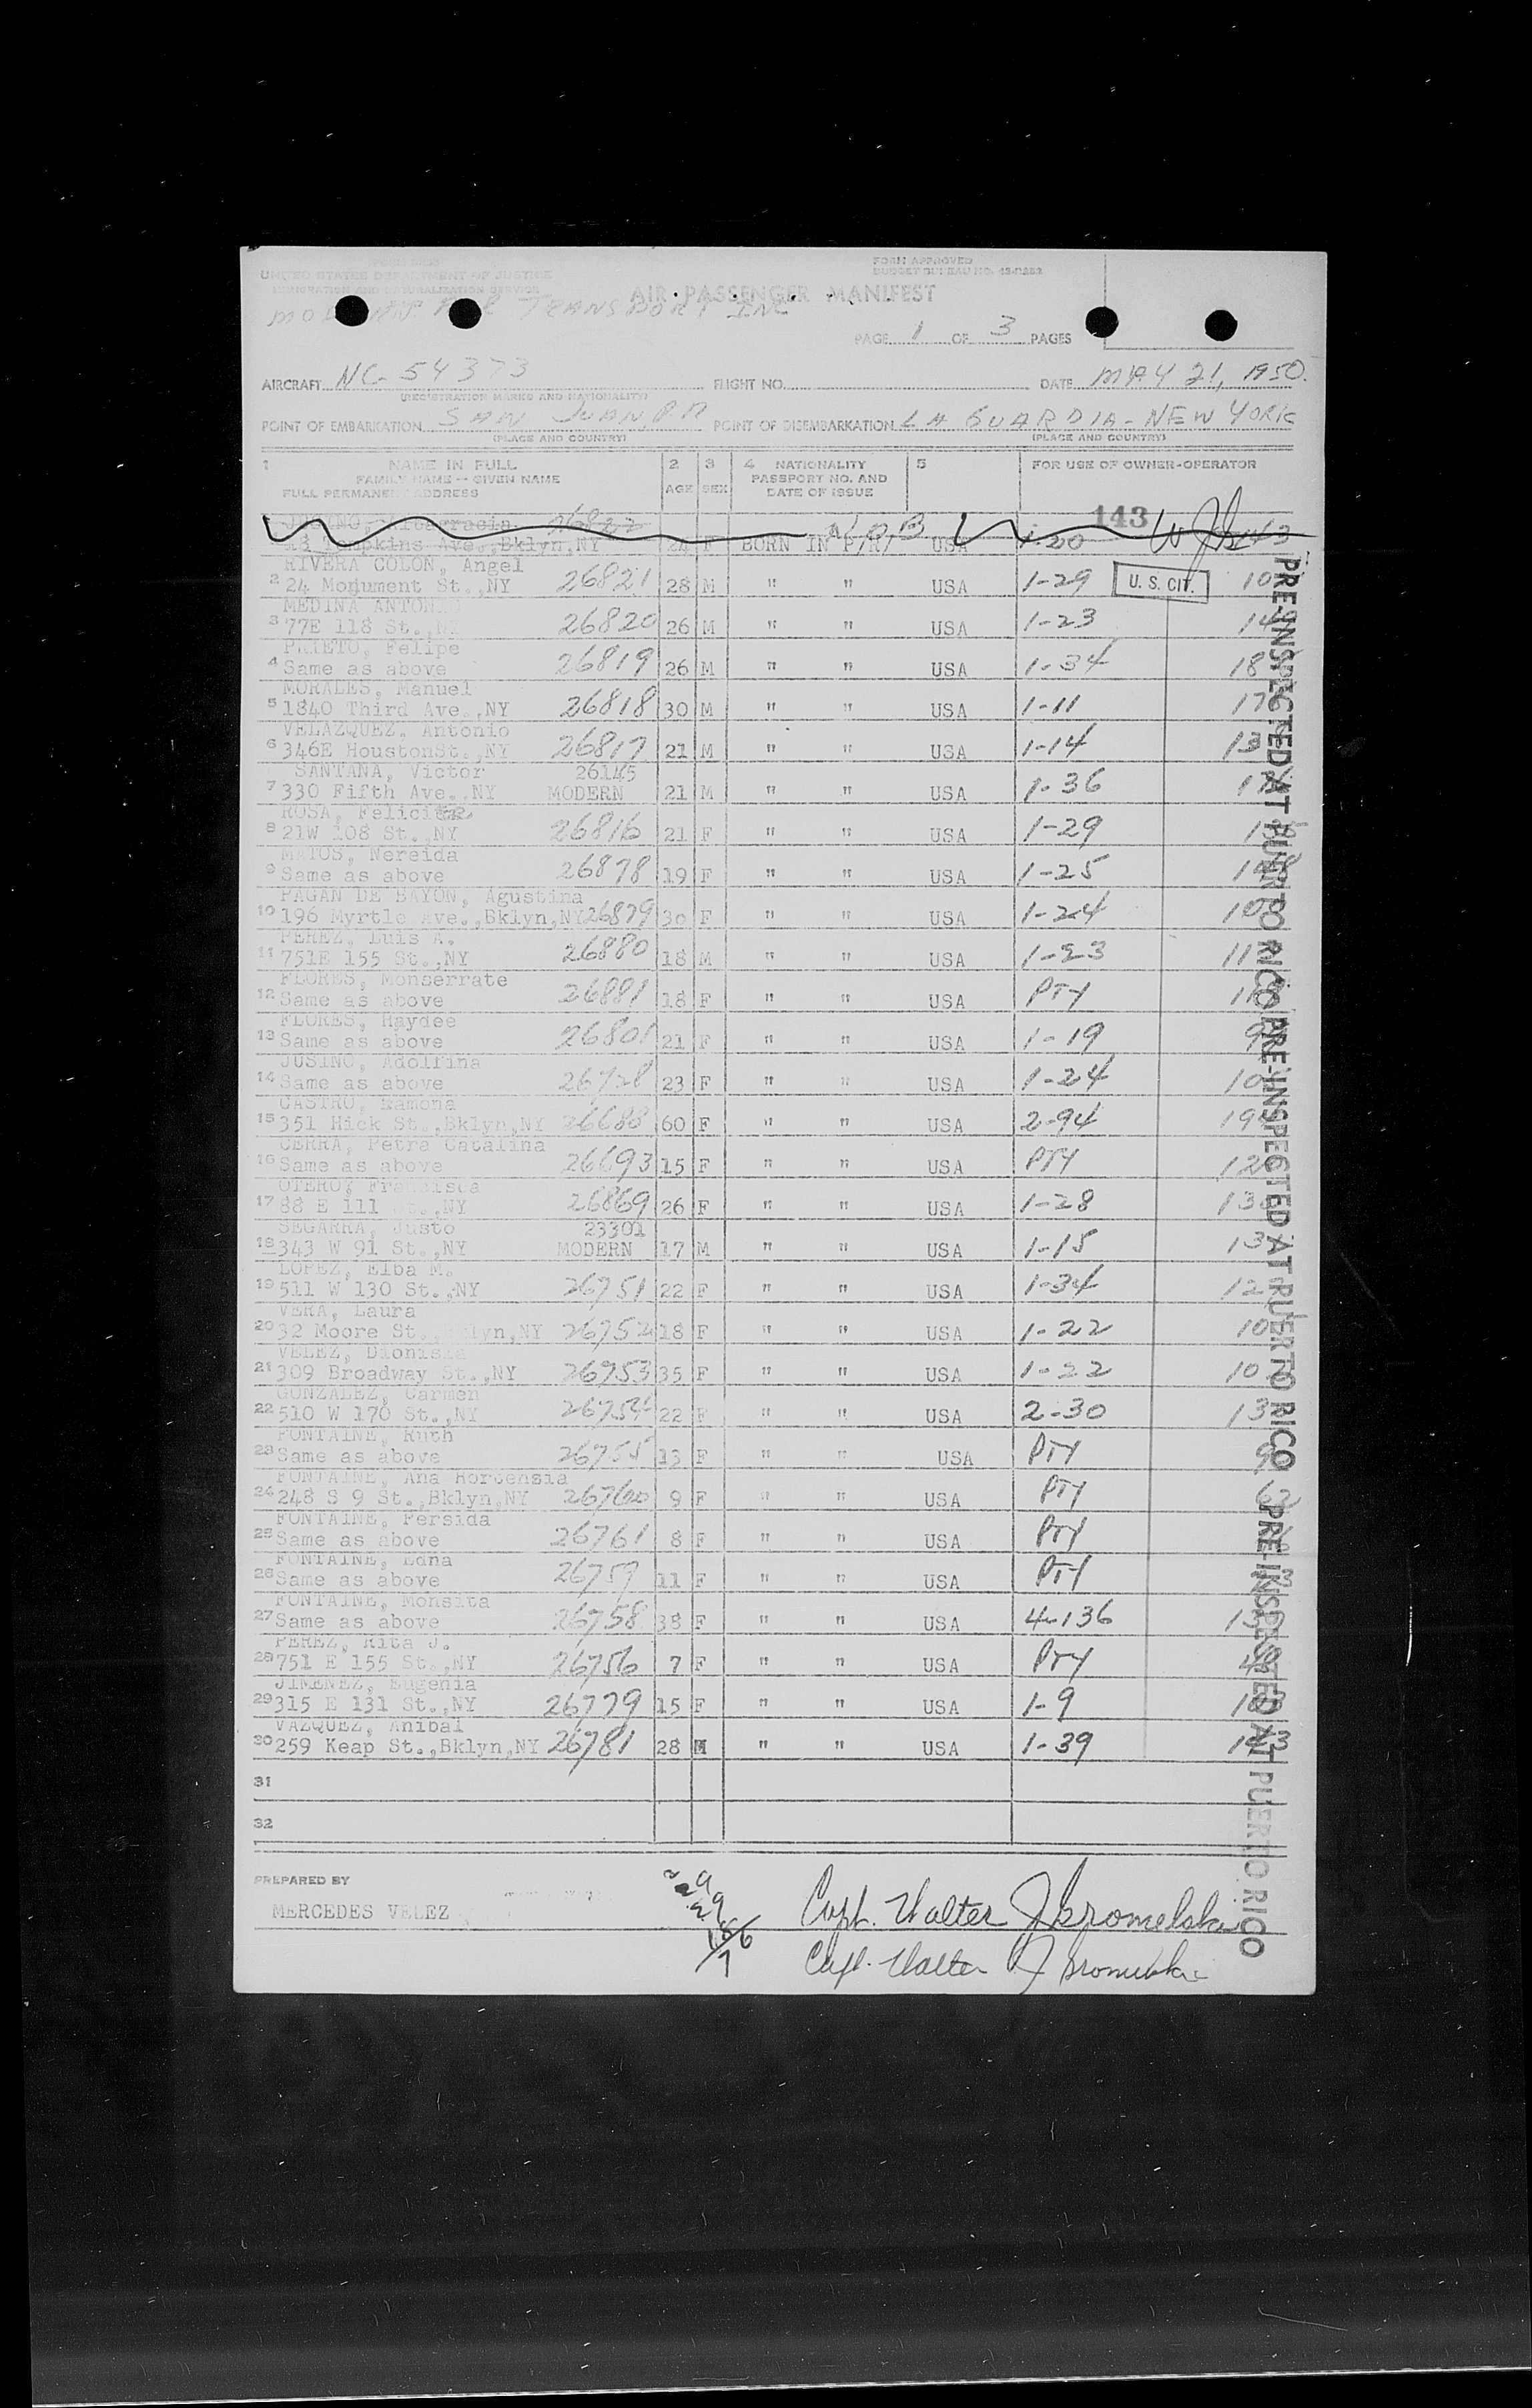 UNITED STATES DEPARTMENT OF JUSTICE
IMMIGRATION AND NATURALIZATION SERVICE
FORM APPROVED
BUDGET BUREAU NO.
AIR PASSENGER MANIFEST
TRANSPORT INC
PAGE 1 OF 3 PAGES
AIRCRAFT NC-54373 FLIGHT NO. DATE MAY 21, 1950.
(REGISTRATION MARKS AND NATIONALITY)
POINT OF EMBARKATION SAN JUAN, P.R POINT OF DISEMBARKATION LA GUARDIA-NEW YORK
(PLACE AND COUNTRY) (PLACE AND COUNTRY)
1 NAME IN FULL 2 3 4 NATIONALITY 5 FOR USE OF OWNER-OPERATOR
FAMILY NAME -- GIVEN NAME AGE SEX PASSPORT NO. AND
FULL PERMANENT ADDRESS DATE OF ISSUE
JUSINO, Altagracia 26822 NOB 143
Tompkins Ave.,Bklyn,NY 24 F BORN IN P/R/ USA 1-20 143
RIVERA COLON, Angel
2 24 Monument St.,NY 26821 28 M " " USA 1-29 U. S. CIT.
MEDINA ANTONIO
3 77E 118 St.,NY 26820 26 M " " USA 1-23
PRIETO, Felipe
4 Same as above 26819 26 M " " USA 1-34
MORALES, Manuel
5 1840 Third Ave.,NY 26818 30 M " " USA 1-11
VELAZQUEZ, Antonio
6 346E HoustonSt.,NY 26817 21 M " " USA 1-14
SANTANA, Victor 26145
7 330 Fifth Ave.,NY MODERN 21 M " " USA 1-36
ROSA, Felicita
8 21W 108 St.,NY 26816 21 F " " USA 1-29
MATOS, Nereida
9 Same as above 26878 19 F " " USA 1-25
PAGAN DE BAYON, Agustina
10 196 Myrtle Ave.,Bklyn,NY 26879 30 F " " USA 1-24
PEREZ, Luis A.
11 751E 155 St.,NY 26880 18 M " " USA 1-23
FLORES, Monserrate
12 Same as above 26881 18 F " " USA PTY
FLORES, Haydee
13 Same as above 26801 21 F " " USA 1-19
JUSINO, Adolfina
14 Same as above 26728 23 F " " USA 1-24
CASTRO, Ramona
15 351 Hick St.,Bklyn,NY 26688 60 F " " USA 2-94
CERRA, Petra Catalina
16 Same as above 26693 15 F " " USA PTY
OTERO, Francisca
17 88 E 111 St.,NY 26869 26 F " " USA 1-28
SEGARRA, Justo 23301
18 343 W 91 St.,NY MODERN 17 M " " USA 1-15
LOPEZ, Elba M.
19 511 W 130 St.,NY 26751 22 F " " USA 1-34
VERA, Laura
20 32 Moore St.,Bklyn,NY 26752 18 F " " USA 1-22
VELEZ, Dionisia
21 309 Broadway St.,NY 26753 35 F " " USA 1-22
GONZALEZ, Carmen
22 510 W 170 St.,NY 26754 22 F " " USA 2-30
FONTAINE, Ruth
23 Same as above 26755 13 F " " USA PTY
FONTAINE, Ana Horcensia
24 248 S 9 St.,Bklyn,NY 26760 9 F " " USA PTY
FONTAINE, Persida
25 Same as above 26761 8 F " " USA PTY
FONTAINE, Edna
26 Same as above 26759 11 F " " USA PTY
FONTAINE, Monsita
27 Same as above 26758 38 F " " USA 4-136
PEREZ, Rita J.
28 751 E 155 St.,NY 26756 7 F " " USA PTY
JIMENEZ, Eugenia
29 315 E 131 St.,NY 26779 15 F " " USA 1-9
VAZQUEZ, Anibal
30 259 Keap St.,Bklyn,NY 26781 28 M " " USA 1-39
31
32
PRE-INSPECTED AT PUERTO RICO PRE-INSPECTED AT PUERTO RICO PRE-INSPECTED AT PUERTO RICO
PREPARED BY
MERCEDES VELEZ
Capt. Walter
Capt. Walter